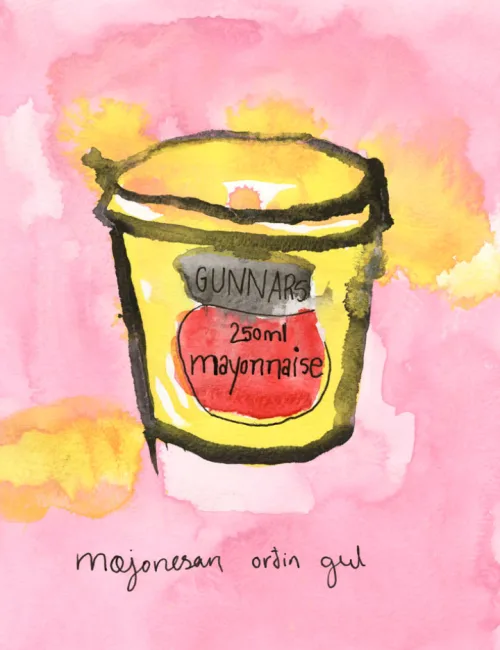 GUNNARS
250ml
mayonnaise
majonesan orðin gul